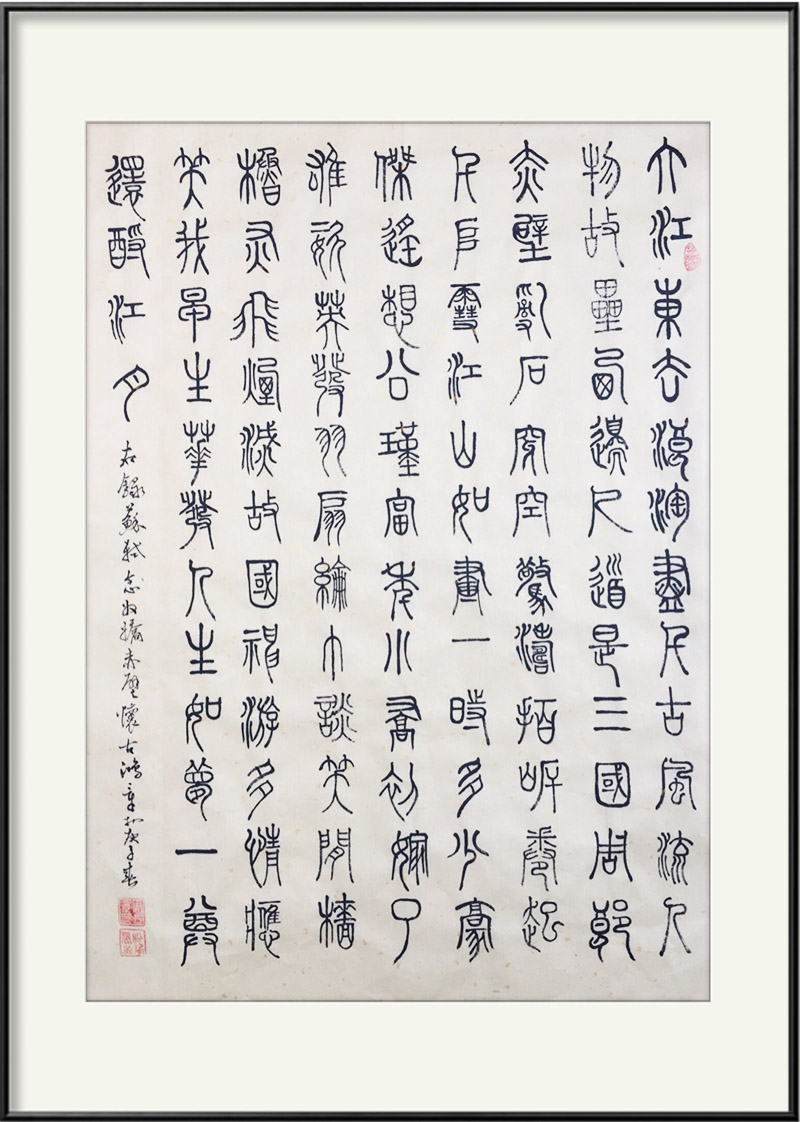 大江東去浪淘盡千古風流人
物故壘西邊人道是三國周郎
赤壁亂石穿空驚濤拍岸卷起
千堆雪江山如畫一時多少豪
傑遙想公瑾當年小喬初嫁了
雄姿英發羽扇綸巾談笑間檣
櫓灰飛煙滅故國神游多情應
笑我早生華發人生如夢一尊
還酹江月
右錄蘇軾念奴嬌赤壁懷古鴻章於庚子春